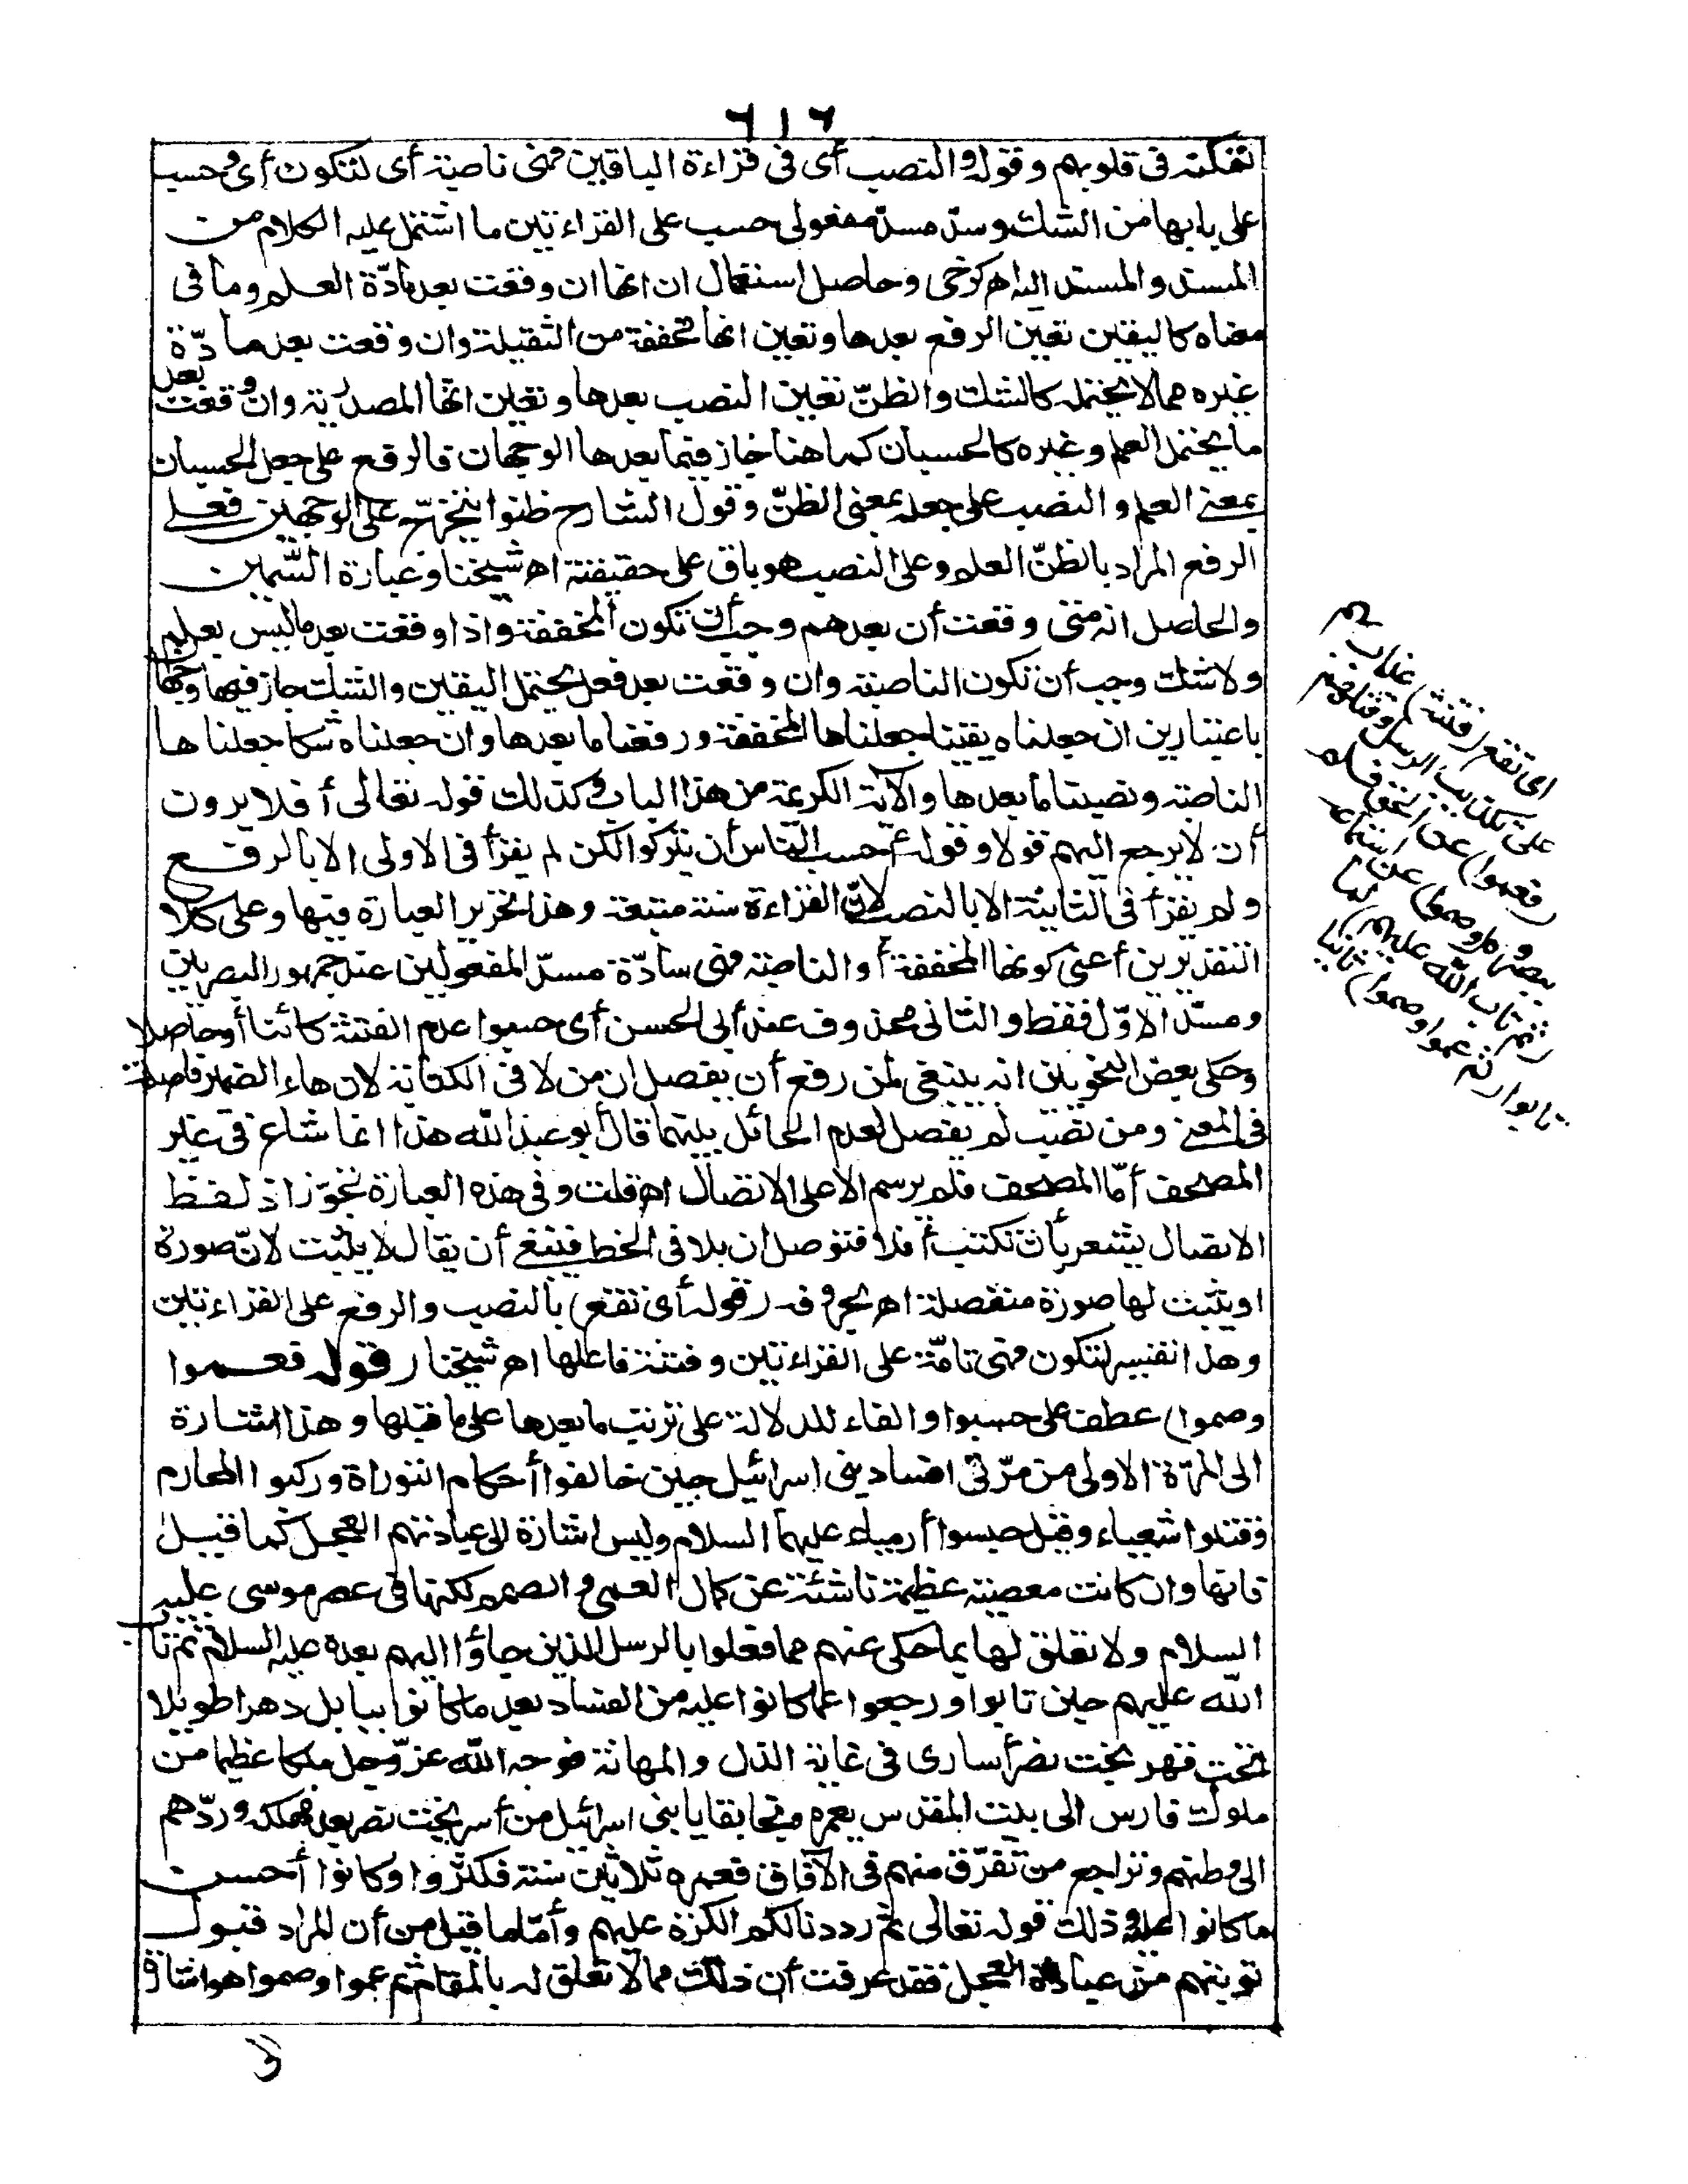 ٦١٦
لتمكنه في قلوبهم وقوله والنصب أى في قراءة الباقين فهى ناصبة أى لتكون أى وحسب
على بابها من الشك وسدّ مسدّ مفعولى حسب على القراءتين ما اشتمل عليه الكلام من
المسند والمسند اليه اهـ كرخى وحاصل استعمال ان انها ان وقعت بعد مادّة العلم وما في
معناه كاليقين تعين الرفع بعدها وتعين انها مخففة من الثقيلة وان وقعت بعد مادّة
غيره مما لا يحتمله كالشك والظنّ تعين النصب بعدها وتعين انها المصدرية وان وقعت بعد
ما يحتمل العلم وغيره كالحسبان كما هنا جاز فيما بعدها الوجهان فالرفع على جعل الحسبان
بمعنى العلم والنصب على جعله بمعنى الظنّ وقول الشارح ظنوا يتخرّج على الوجهين فعلى
الرفع المراد بالظنّ العلم وعلى النصب هو باق على حقيقته اهـ شيخنا وعبارة السمين
والحاصل انه متى وقعت أن بعد علم وجب أن تكون المخففة واذا وقعت بعد ما ليس بعلم
ولا شك وجب أن تكون الناصبة وان وقعت بعد فعل يحتمل اليقين والشك جاز فيها وجهان
باعتبارين ان جعلناه يقينا جعلناها المخففة ورفعنا ما بعدها وان جعلناه شكا جعلناها
الناصبة ونصبنا ما بعدها والآية الكريمة من هذا الباب وكذلك قوله تعالى أفلا يرون
أن لا يرجع اليهم قولا وقوله أحسب الناس أن يتركوا لكن لم يقرأ في الاولى الا بالرفع
ولم يقرأ في الثانية الا بالنصب لانّ القراءة سنة متبعة وهذا تحرير العبارة فيها وعلى كلا
التقديرين أعنى كونها المخففة أو الناصبة فهى سادّة مسدّ المفعولين عند جمهور البصريين
ومسدّ الاوّل فقط والثانى محذوف عند أبى الحسن أى حسبوا عدم الفتنة كائنا أو حاصلا
وحكى بعض النحويين انه ينبغى لمن رفع أن يفصل ان من لا في الكتابة لان هاء الضمير فاصلة
في المعنى ومن نصب لم يفصل لعدم الحائل بينهما قال أبو عبد الله هذا انما شاع في غير
المصحف أمّا المصحف فلم يرسم الا على الاتصال اهـ قلت وفي هذه العبارة تجوّز اذ لفظ
الاتصال يشعر بأن تكتب أنلا فتوصل ان بلا في الخط فينبغى أن يقال لا يثبت لانّ صورة
او يثبت لها صورة منفصلة اهـ بحروفه (قوله أى تقع) بالنصب والرفع على القراءتين
وهذا تفسير لتكون فهى تامّة على القراءتين وفتنة فاعلها اهـ شيخنا (قوله فعموا
وصموا) عطف على حسبوا والفاء للدلالة على ترتيب ما بعدها على ما قبلها وهذا اشارة
الى المرّة الاولى من مرّتى افساد بنى اسرائيل حين خالفوا أحكام التوراة وركبوا المحارم
فقتلوا شعياء وقيل حبسوا أرمياء عليهما السلام وليس اشارة الى عبادتهم العجل كما قيل
فانها وان كانت معصية عظيمة ناشئة عن كمال العمى والصمم لكنها في عصر موسى عليه
السلام ولا تعلق لها بما حكى عنهم مما فعلوا بالرسل الذين جاؤا اليهم بعده عليه السلام ثم تاب
الله عليهم حين تابوا ورجعوا عما كانوا عليه من الفساد بعد ما كانوا ببابل دهرا طويلا
تحت قهر بخت نصر أسارى في غاية الذل والمهانة فوجه الله عزّ وجل ملكا عظيما من
ملوك فارس الى بيت المقدس يعمره ونجا بقايا بنى اسرائيل من أسر بخت نصر بعد مهلكه وردّهم
الى وطنهم وتراجع من تفرّق منهم في الآفاق فعمره ثلاثين سنة فكثروا وكانوا أحسن
ما كانوا عليه وذلك قوله تعالى ثم رددنا لكم الكرّة عليهم وأمّا ما قيل من أن المراد قبول
توبتهم من عبادة العجل فقد عرفت أن ذلك مما لا تعلق له بالمقام ثم عموا وصموا هو اشارة
اى تقع (فتنة) عذاب بهم
على تكذيب الرسل وقتلهم
(فعموا) عن الحق فلم
يبصروه (وصموا) عن استماعه
(ثم تاب الله عليهم) لما
تابوا (ثم عموا وصموا) ثانيا